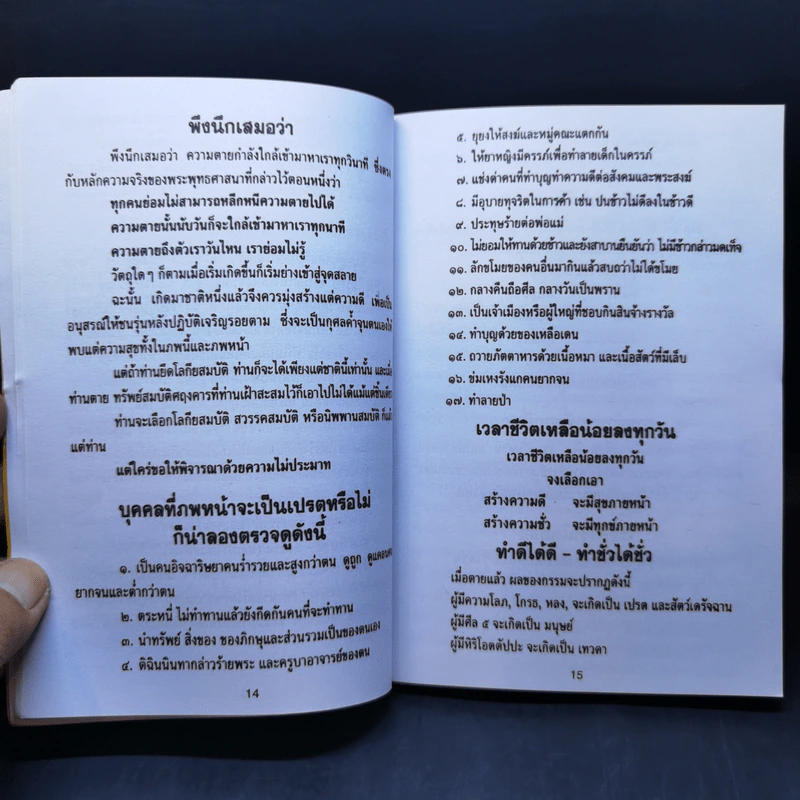 พึงนึกเสมอว่า
พึงนึกเสมอว่า ความตายกำลังใกล้เข้ามาหาเราทุกวินาที ซึ่งตรง
กับหลักความจริงของพระพุทธศาสนาที่กล่าวไว้ตอนหนึ่งว่า
ทุกคนย่อมไม่สามารถหลีกหนีความตายไปได้
ความตายนั้นนับวันก็จะใกล้เข้ามาหาเราทุกนาที
ความตายถึงตัวเราวันไหน เราย่อมไม่รู้
วัตถุใดๆ ก็ตามเมื่อเริ่มเกิดขึ้นก็เริ่มย่างเข้าสู่จุดสลาย
ฉะนั้น เกิดมาชาติหนึ่งแล้วจึงควรมุ่งสร้างแต่ความดี เพื่อเป็น
อนุสรณ์ให้ชนรุ่นหลังปฏิบัติเจริญรอยตาม ซึ่งจะเป็นกุศลค้ำจุนตนเองให้
พบแต่ความสุขทั้งในภพนี้และภพหน้า
แต่ถ้าท่านยึดโลกียสมบัติ ท่านก็จะได้เพียงแต่ชาตินี้เท่านั้น และเมื่อ
ท่านตาย ทรัพย์สมบัติศฤงคารที่ท่านเฝ้าสะสมไว้ก็เอาไปไม่ได้แม้แต่ชิ้นเดียว
ท่านจะเลือกโลกียสมบัติ สวรรคสมบัติ หรือนิพพานสมบัติ ก็แล้ว
แต่ท่าน
แต่ใคร่ขอให้พิจารณาด้วยความไม่ประมาท
บุคคลที่ภพหน้าจะเป็นเปรตหรือไม่
ก็น่าลองตรวจดูดังนี้
๑. เป็นคนอิจฉาริษยาคนร่ำรวยและสูงกว่าตน ดูถูก ดูแคลนคน
ยากจนและต่ำกว่าตน
๒. ตระหนี่ ไม่ทำทานแล้วยังกีดกันคนที่จะทำทาน
๓. นำทรัพย์ สิ่งของ ของภิกษุและส่วนรวมเป็นของตนเอง
๔. ติฉินนินทากล่าวร้ายพระ และครูบาอาจารย์ของตน
14
๕. ยุยงให้สงฆ์และหมู่คณะแตกกัน
๖. ให้ยาหญิงมีครรภ์เพื่อทำลายเด็กในครรภ์
๗. แช่งด่าคนที่ทำบุญทำความดีต่อสังคมและพระสงฆ์
๘. มีอุบายทุจริตในการค้า เช่น ปนข้าวไม่ดีลงในข้าวดี
๙. ประทุษร้ายต่อพ่อแม่
๑๐. ไม่ยอมให้ทานด้วยข้าวและยังสาบานยืนยันว่า ไม่มีข้าวกล่าวมดเท็จ
๑๑. ลักขโมยของคนอื่นมากินแล้วสบถว่าไม่ได้ขโมย
๑๒. กลางคืนถือศีล กลางวันเป็นพราน
๑๓. เป็นเจ้าเมืองหรือผู้ใหญ่ที่ชอบกินสินจ้างรางวัล
๑๔. ทำบุญด้วยของเหลือเดน
๑๕. ถวายภัตตาหารด้วยเนื้อหมา และเนื้อสัตว์ที่มีเล็บ
๑๖. ข่มเหงรังแกคนยากจน
๑๗. ทำลายป่า
เวลาชีวิตเหลือน้อยลงทุกวัน
เวลาชีวิตเหลือน้อยลงทุกวัน
จงเลือกเอา
สร้างความดี จะมีสุขภายหน้า
สร้างความชั่ว จะมีทุกข์ภายหน้า
ทำดีได้ดี - ทำชั่วได้ชั่ว
เมื่อตายแล้ว ผลของกรรมจะปรากฏดังนี้
ผู้มีความโลภ, โกรธ, หลง, จะเกิดเป็น เปรต และสัตว์เดรัจฉาน
ผู้มีศีล ๕ จะเกิดเป็น มนุษย์
ผู้มีหิริโอตตัปปะ จะเกิดเป็น เทวดา
15